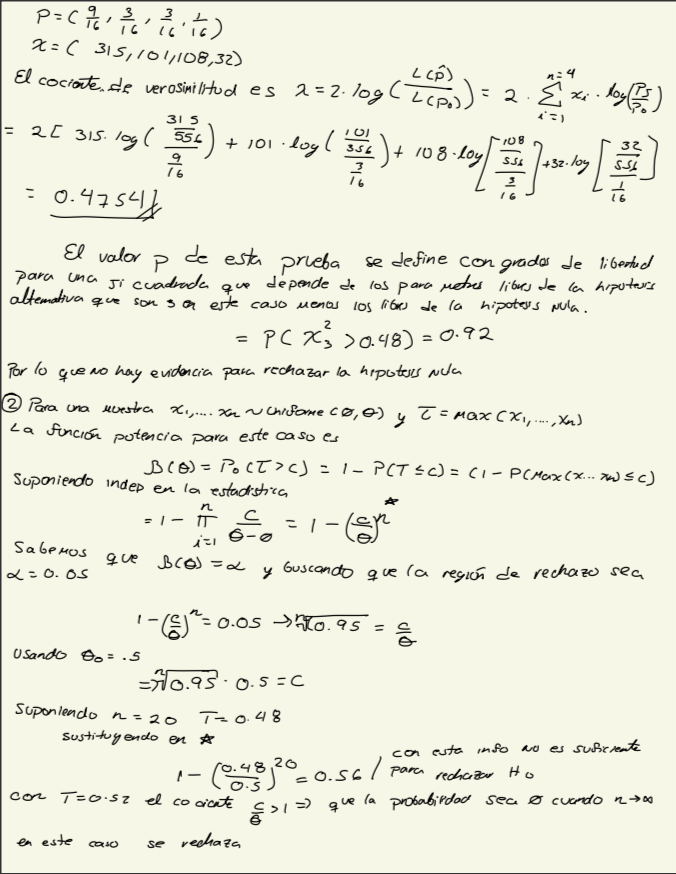 P = ( 9/16, 3/16, 3/16, 1/16 )
x = ( 315, 101, 108, 32 )
El cociente de verosimilitud es λ = 2·log( L(p̂) / L(p₀) ) = 2 · Σ_{i=1}^{n=4} xᵢ · log( Pj / P₀ )
= 2[ 315·log( (315/556) / (9/16) ) + 101·log( (101/356) / (3/16) ) + 108·log[ (108/556) / (3/16) ] + 32·log[ (32/556) / (1/16) ]
= 0.4754
El valor p de esta prueba se define con grados de libertad
para una ji cuadrada que depende de los parametros libres de la hipotesis
alternativa que son 3 en este caso menos los libres de la hipotesis nula.
= P( χ²₃ > 0.48) = 0.92
Por lo que no hay evidencia para rechazar la hipotesis nula
② Para una muestra x₁,.... xn ~ Uniforme (0, θ) y T = Max (x₁,..., xn)
La función potencia para este caso es
B(θ) = P₀ (T > c) = 1 - P(T ≤ c) = (1 - P(Max(x... xn) ≤ c)
Suponiendo indep en la estadistica
= 1 - ∏_{i=1}^{n} c/(θ-0) = 1 - (c/θ)ⁿ ☆
Sabemos que B(θ) = α y buscando que la región de rechazo sea
α = 0.05
1 - (c/θ)ⁿ = 0.05 → ⁿ√0.95 = c/θ
Usando θ₀ = .5
= ⁿ√0.95 · 0.5 = C
Suponiendo n = 20 T = 0.48
sustituyendo en ☆
1 - (0.48/0.5)²⁰ = 0.56 / con esta info no es suficiente
para rechazar H₀
con T = 0.52 el cociente c/θ > 1 => que la probabilidad sea 0 cuando n → ∞
en este caso se rechaza